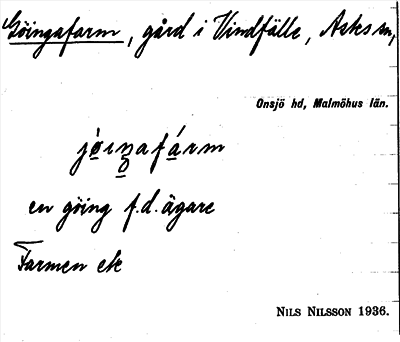 Göingafarm, gård i Vindfälle, Asks sn,
Onsjö hd, Malmöhus län.
jo̱iŋafa̱rm
en göing f.d. ägare
Farmen ek
NILS NILSSON 1936.